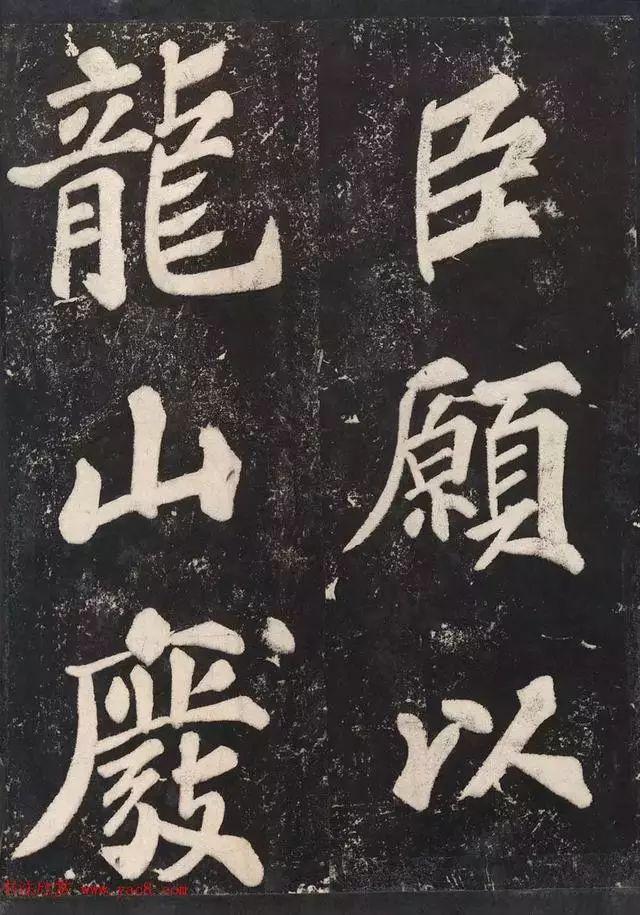 臣願以
龍山廢
www.yac8.com